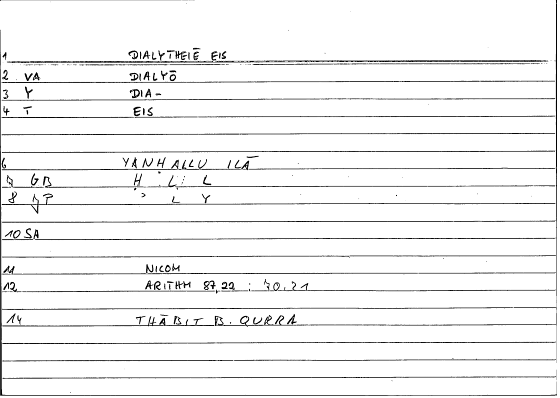 1 DIALYTHEIĒ EIS
2 VA DIALYŌ
3 Y DIA-
4 T EIS
6 YANḤALLU ILĀ
GB Ḥ L L
8 P ʾ L Y
10 SA
11 NICOM
12 ARITHM 87,22 : 70,21
14 THĀBIT B. QURRA